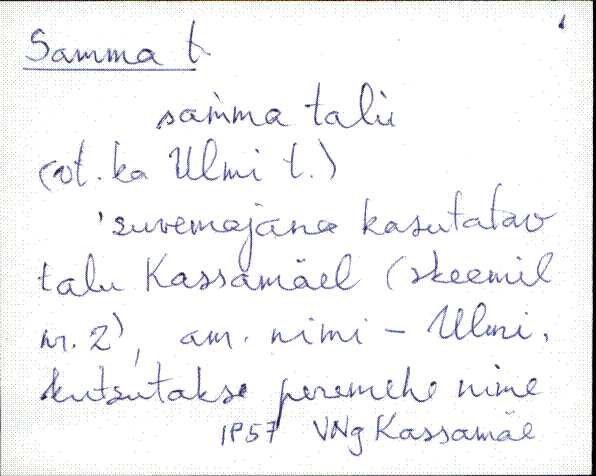 Samma t.
sam̀ma talù
(vt. ka Ulmi t.)
'suvemajana kasutatav
talu Kassamäel (skeemil
nr. 2), am. nimi – Ulmi,
kutsutakse peremehe nime
1957 VNg Kassamäe